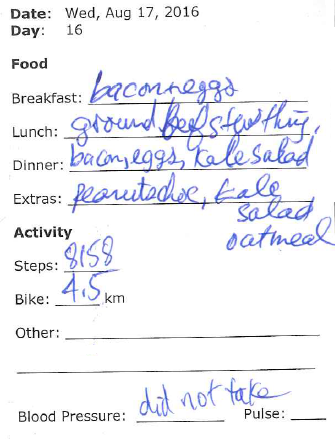 Date: Wed, Aug 17, 2016
Day: 16
Food
Breakfast: bacon, eggs
Lunch: ground beef stew thing,
Dinner: bacon, eggs, kale salad
Extras: peanuts choc, kale
salad
oatmeal
Activity
Steps: 8158
Bike: 4.5 km
Other:
did not take
Blood Pressure: Pulse: